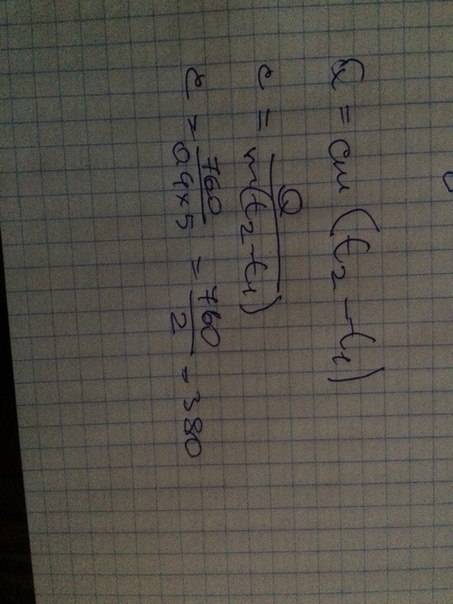 Q = cm (t₂ - t₁)
c = Q / m(t₂-t₁)
c = 760 / 0,4×5 = 760 / 2 = 380